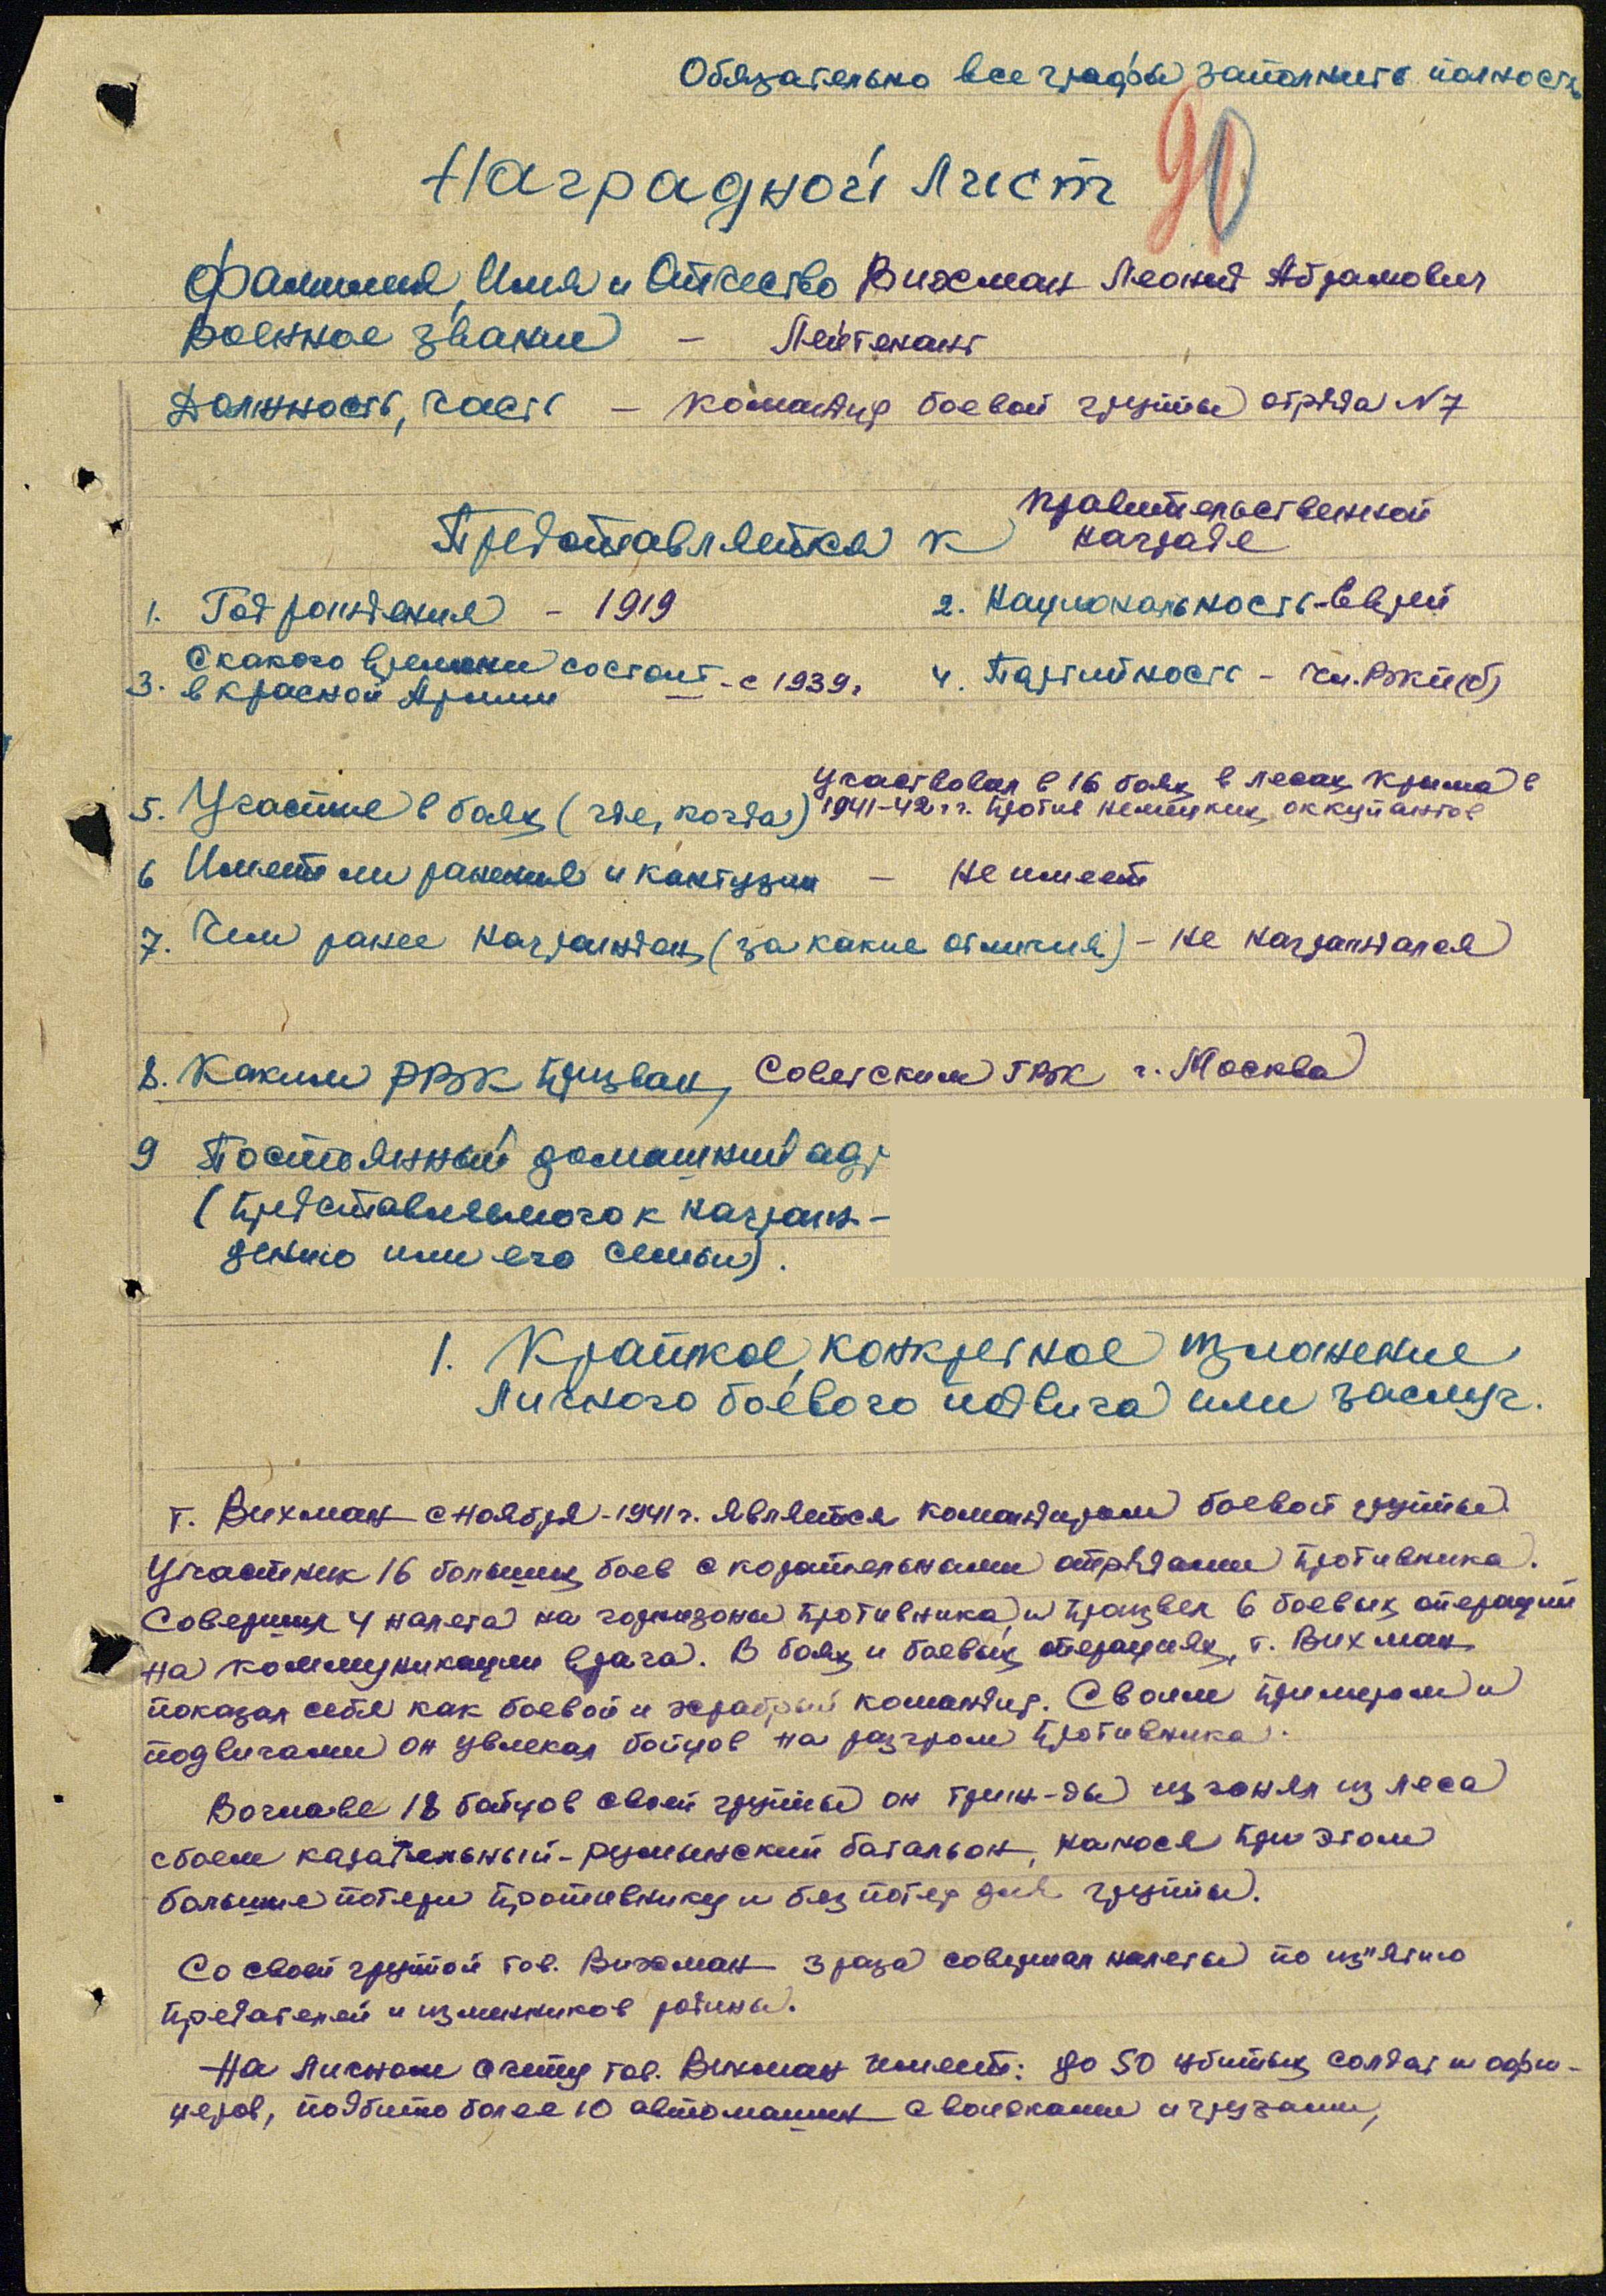 Обязательно все графы заполнить полность
Наградной лист
90
Фамилия, Имя и Отчество Вихман Леонид Абрамович
Военное звание – Лейтенант
Должность, часть – Командир боевой группы отряда N7
Представляется к правительственной
награде
1. Год рождения – 1919 2. Национальность-Еврей
3. С какого времени состоит
в красной Армии – с 1939г 4. Партийность – чл.ВКП(б)
5. Участие в боях (где, когда) Участвовал в 16 боях в лесах Крыма в
1941-42 гг. против немецких оккупантов
6 Имеет ли ранения и контузии – Не имеет
7. Чем ранее награжден (за какие отличия) – не награждался
8. Каким РВК призван, Советским ГВК г. Москва
9 Постоянный домашний адр
(представляемого к награж-
дению или его семьи).
1. Краткое, конкретное изложение
личного боевого подвига или заслуг.
т. Вихман с ноября-1941г. является командиром боевой группы.
Участник 16 больших боев с карательными отрядами противника.
Совершил 4 налета на горнизоны противника, и произвел 6 боевых операций
на коммуникации врага. В боях и боевых операциях, т. Вихман
показал себя как боевой и храбрый командир. Своим примером и
подвигами он увлекал бойцов на разгром противника.
Во главе 18 бойцов своей группы он триж-ды изгонял из леса
с боем карательный-румынский батальон, нанося при этом
большие потери противнику и без потер для группы.
Со своей группой тов. Вихман 3 раза совершал налеты по из"ятию
предателей и изменников родины.
На личном счету тов. Вихман имеет: до 50 убитых солдат и офи-
церов, подбито более 10 автомашин с войсками и грузами,